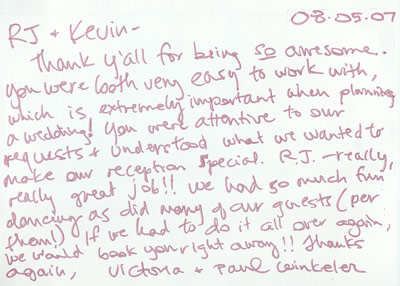 08.05.07
RJ + Kevin-
Thank y'all for being so awesome.
You were both very easy to work with,
which is extremely important when planning
a wedding! You were attentive to our
requests + understood what we wanted to
make our reception special. R.J. - really,
really great job!! We had so much fun
dancing as did many of our guests (per
them!) If we had to do it all over again,
we would book you right away!! Thanks
again, Victoria + Paul Winkeler